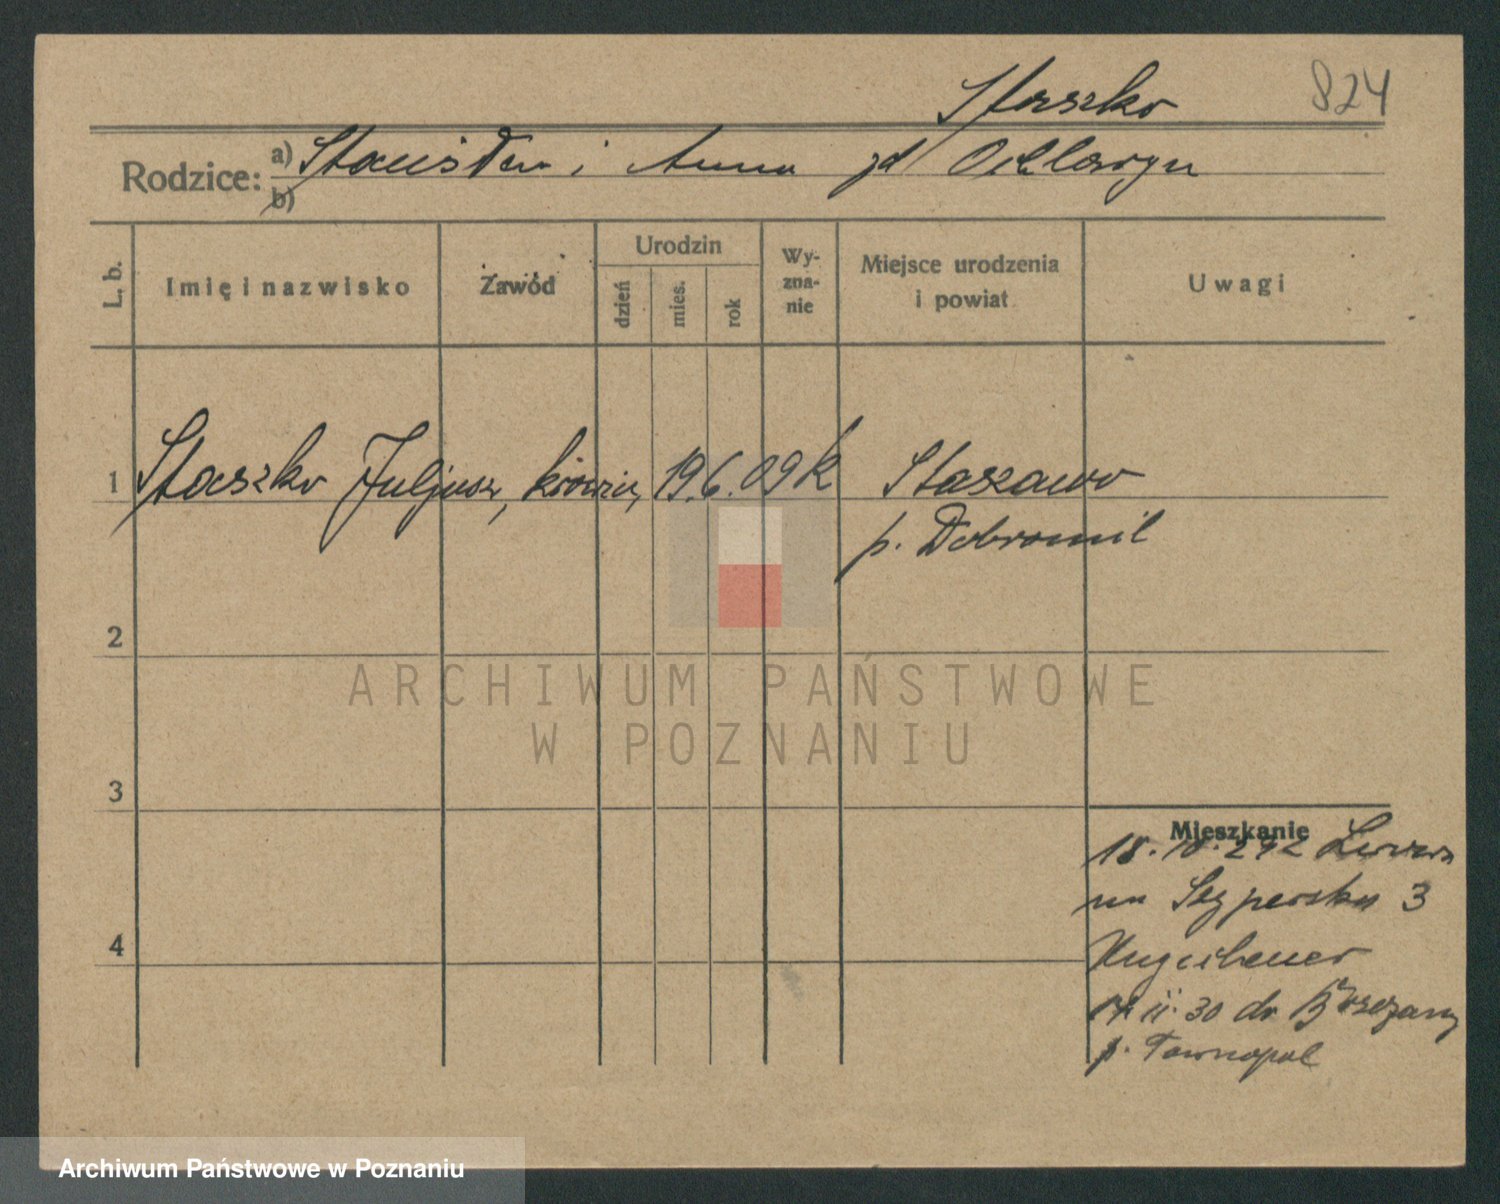 824
Staszko
Rodzice: a) Stanisław i Anna zd
b)
L. b.
Imię i nazwisko
Zawód
Urodzin
dzień
mies.
rok
Wy-
zna-
nie
Miejsce urodzenia
i powiat
Uwagi
1 Staszko Juljusz, 19.6.09 k
p. Dobromil
2
3
4
Mieszkanie
18.10. Lwowa
3
30 do Brzeżany
p. Tarnopol
ARCHIWUM PAŃSTWOWE
W POZNANIU
Archiwum Państwowe w Poznaniu